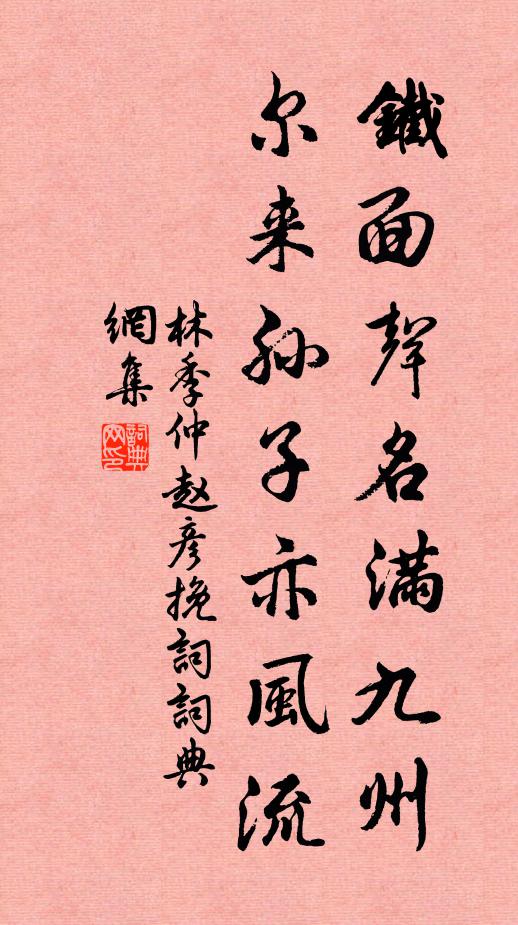 鐵面聲名滿九州
尔来孙子亦風流
林季仲赵彦挽詞詞典
網集
詞典网印